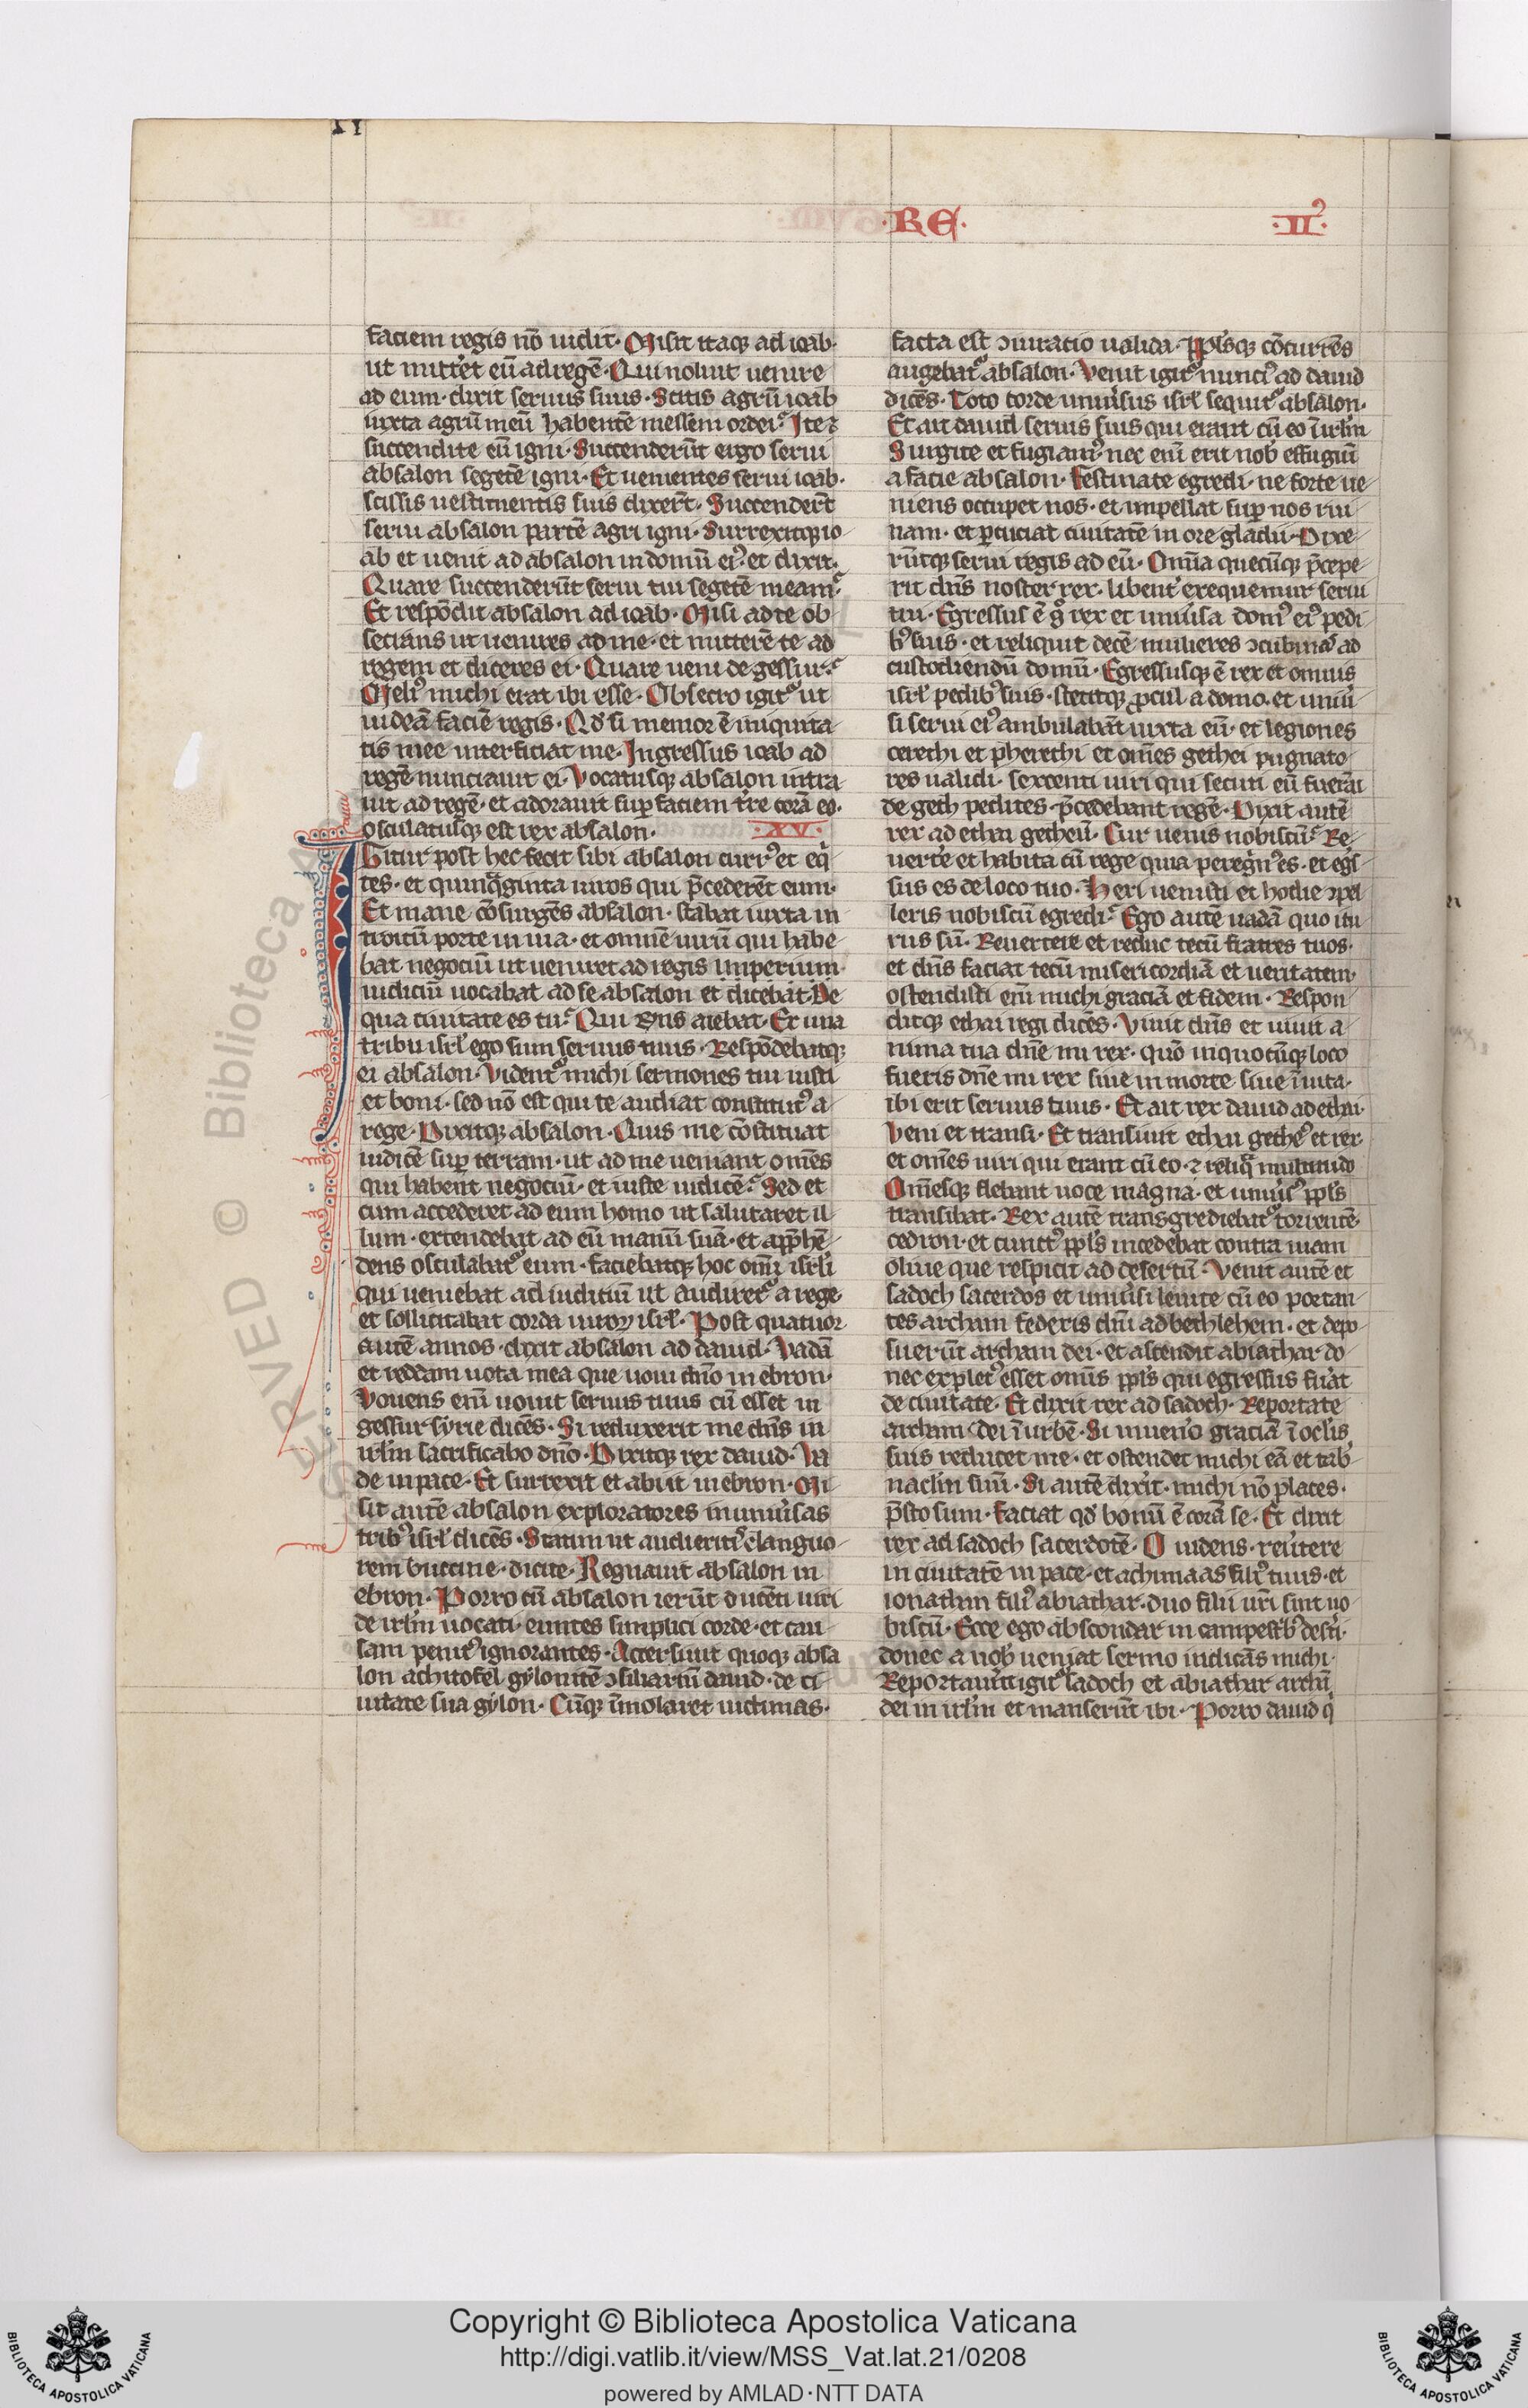 ·RE·
·II·
faciem regis nō uidit. Misit itaq̄ ad ioab.
ut mitt̄et eū ad regē. Qui noluit uenire
ad eum. dixit seruis suis. Scitis agrū ioab
iuxta agrū meū habentē messem ordei. Ite ⁊
succendite eū igni. Succenderūt ergo serui
absalon segetē igni. Et uenientes serui ioab.
scissis uestimentis suis dixer̄t. Succender̄t
serui absalon partē agri igni. Surrexitq̄ io-
ab et uenit ad absalon in domū ei᾽. et dixit.
Quare succenderūt serui tui segetē meam.
Et respōdit absalon ad ioab. Misi ad te ob-
secrans ut uenires ad me. et mitterē te ad
regem et diceres ei. Quare ueni de gessur.
Meli᾽ michi erat ibi esse. Obsecro igit᾽ ut
uideā faciē regis. Qd̄ si memor ē iniquita-
tis mee interficiat me. Ingressus ioab ad
regē nunciauit ei. Vocatusq̄ absalon intra-
uit ad regē. et adorauit sup̄ faciem tr̄e corā eo.
osculatusq̄ est rex absalon. ·XV·
IGitur post hec fecit sibi absalon curr᾽ et eq̇-
tes. et quinq̄ginta uiros qui p̄cederēt eum.
Et mane cōsurgēs absalon. stabat iuxta in-
troitū porte in uia. et omnē uirū qui habe-
bat negociū ut ueniret ad regis imperium
iudiciū uocabat ad se absalon et dicebat. De
qua ciuitate es tu. Qui r̄ns aiebat. Ex una
tribu isrl̄ ego sum seruus tuus. Respōdebatq̄
ei absalon. Vident᾽ michi sermones tui iusti
et boni. sed nō est qui te audiat constitut᾽ a
rege. Dixitq̄ absalon. Quis me cōstituat
iudicē sup̄ terram. ut ad me ueniant om̄es
qui habent negociū. et iuste iudicē. Sed et
cum accederet ad eum homo ut salutaret il-
lum. extendebat ad eū manū suā. et app̄hē-
dens osculabat᾽ eum. faciebatq̄ hoc om̄i isrl̄i
qui ueniebat ad iudiciū ut audiret᾽ a rege
et sollicitabat corda uiroꝝ isrl̄. Post quatuor
autē annos. dixit absalon ad dauid. Vadā
et reddam uota mea que uoui dn̄o in ebron.
Vouens eni̅ uouit seruus tuus cū esset in
gessur syrie dicēs. Si reduxerit me dn̄s in
irl̄m sacrificabo dn̄o. Dixitq̄ rex dauid. Va-
de in pace. Et surrexit et abiit in ebron. Mi-
sit autē absalon exploratores in uniu̇sas
trib᾽ isrl̄ dicēs. Statim ut audierit᾽ clanguo-
rem buccine. dicite. Regnauit absalon in
ebron. Porro cū absalon ierūt ducēti uiri
de irl̄m uocati. euntes simplici corde. et cau-
sam penit᾽ ignorantes. Accersiuit quoq̄ absa-
lon achitofel gylonitē ↄsiliariū dauid. de ci-
uitate sua gylon. Cūq̄ im̄olaret uictimas.
facta est ↄiuratio ualida. Ppl̄sq̄ cōcurrēs
augebat᾽ absalon. Venit igit᾽ nunci᾽ ad dauid
dicēs. Toto corde uniu̇sus isrl̄ sequit᾽ absalon.
Et ait dauid seruis suis qui erant cū eo ī irl̄m
Surgite et fugiam᾽. nec eni̅ erit nob̄ effugiū
a facie absalon. Festinate egredi. ne forte ue-
niens occupet nos. et impellat sup̄ nos rui-
nam. et ꝑcuciat ciuitatē in ore gladii. Dixe-
rūtq̄ serui regis ad eū. Omīa quecūq̄ p̄cepe-
rit dn̄s noster rex. libent᾽ exequemur serui
tui. Egressus ē g᾽ rex et uniu̇sa dom᾽ ei᾽ pedi-
b᾽ suis. et reliquit decē mulieres ↄcubinas ad
custodiendū domū. Egressusq̄ ē rex et omnis
isrl̄ pedib᾽ suis. stetitq̄ ꝓcul a domo. et uniu̇-
si serui ei᾽ ambulabāt iuxta eū. et legiones
cerethi et pherethi et om̄es gethei pugnato-
res ualidi. sexcenti uiri qui secuti eū fuerāt
de geth pedites. p̄cedebant regē. Dixit autē
rex ad ethai getheū. Cur uenis nobiscū. Re-
uerte et habita cū rege quia peregn᾽ es. et egs̄-
sus es de loco tuo. Heri uenisti et hodie ↄpel-
leris nobiscū egredi. Ego autē uadā quo itu-
rus sū. Reuertere et reduc tecū fratres tuos.
et dn̄s faciat tecū misericordiā et ueritatem.
ostendisti eni̅ michi graciā et fidem. Respon-
ditq̄ ethai regi dicēs. Viuit dn̄s et uiuit a-
nima tua dn̄e mi rex. quō in quocūq̄ loco
fueris dn̄e mi rex siue in morte siue ī uita.
ibi erit seruus tuus. Et ait rex dauid ad ethai.
Veni et transi. Et transiuit ethai gethe᾽ et rex
et om̄es uiri qui erant cū eo. ⁊ reliq̄ multitudo
Om̄esq̄ flebant uoce magna. et uniu̇s᾽ ppl̄s
transibat. Rex autē transgrediebat᾽ torrentē
cedron. et cunct᾽ ppl̄s incedebat contra uiam
oliue que respicit ad desertū. Venit autē et
sadoch sacerdos et uniu̇si leuite cū eo portan-
tes archam federis dn̄i ad bethlehem. et depo-
suerūt archam dei. et ascendit abiathar do-
nec explet᾽ esset omīs ppl̄s qui egressus fu̇at
de ciuitate. Et dixit rex ad sadoch. Reportate
archam dei ī urbē. Si inuen̄o graciā ī ocl̄is
suis reducet me. et ostendet michi eā et tab̄-
nacl̄m suū. Si autē dixit. michi nō places.
p̄sto sum. faciat qd̄ bonū ē corā se. Et dixit
rex ad sadoch sacerdotē. O uidens. reu̇tere
in ciuitatē in pace. et achimaas fili᾽ tuus. et
ionathan fili᾽ abiathar. duo filii ur̄i sint uo-
biscū. Ecce ego abscondar in campestb᾽ dest̄i.
donec a uob̄ ueniat sermo indicās michi.
Reportauer̄t igit᾽ sadoch et abiathar archā
dei in irl̄m et manserūt ibi. Porro dauid q̇
Copyright © Biblioteca Apostolica Vaticana
http://digi.vatlib.it/view/MSS_Vat.lat.21/0208
powered by AMLAD·NTT DATA